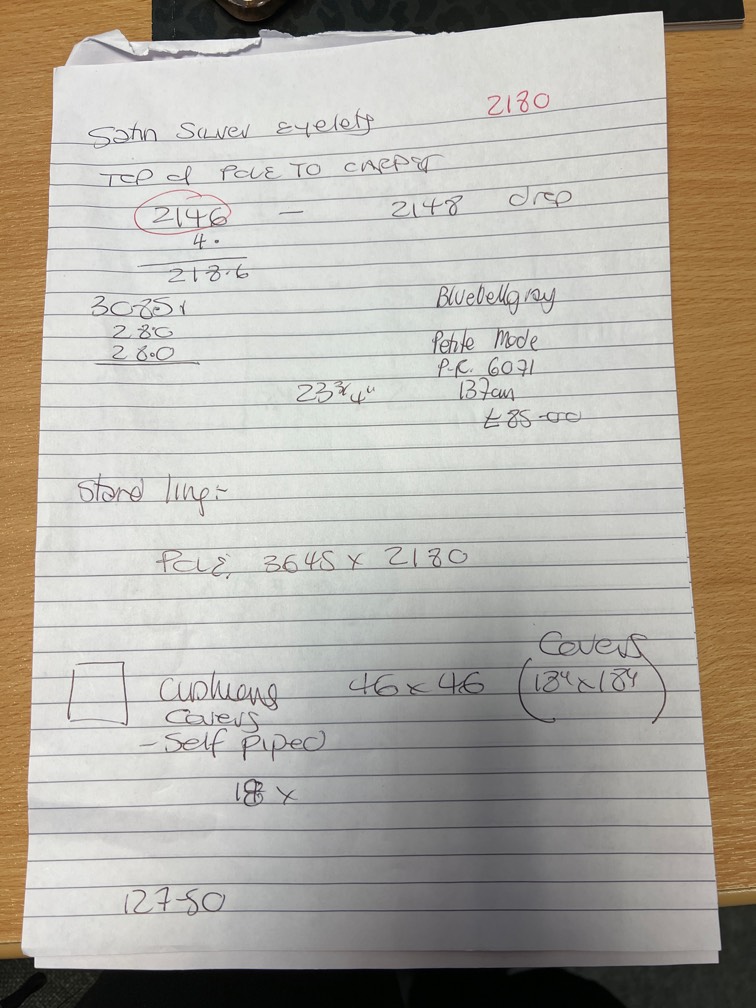 2180
Satin Silver Eyelets
TOP of POLE TO CARPET
2146 — 2148 drop
4.
218.6
3085
280
28.0
Bluebellgray
Petite Mode
P.R. 6071
23 3/4" 137cm
£85-00
Stand ling:-
Pole. 3645 x 2180
Covers
Cushions 46 x 46 (18" x 18")
Covers
- Self piped
18 x
127-50